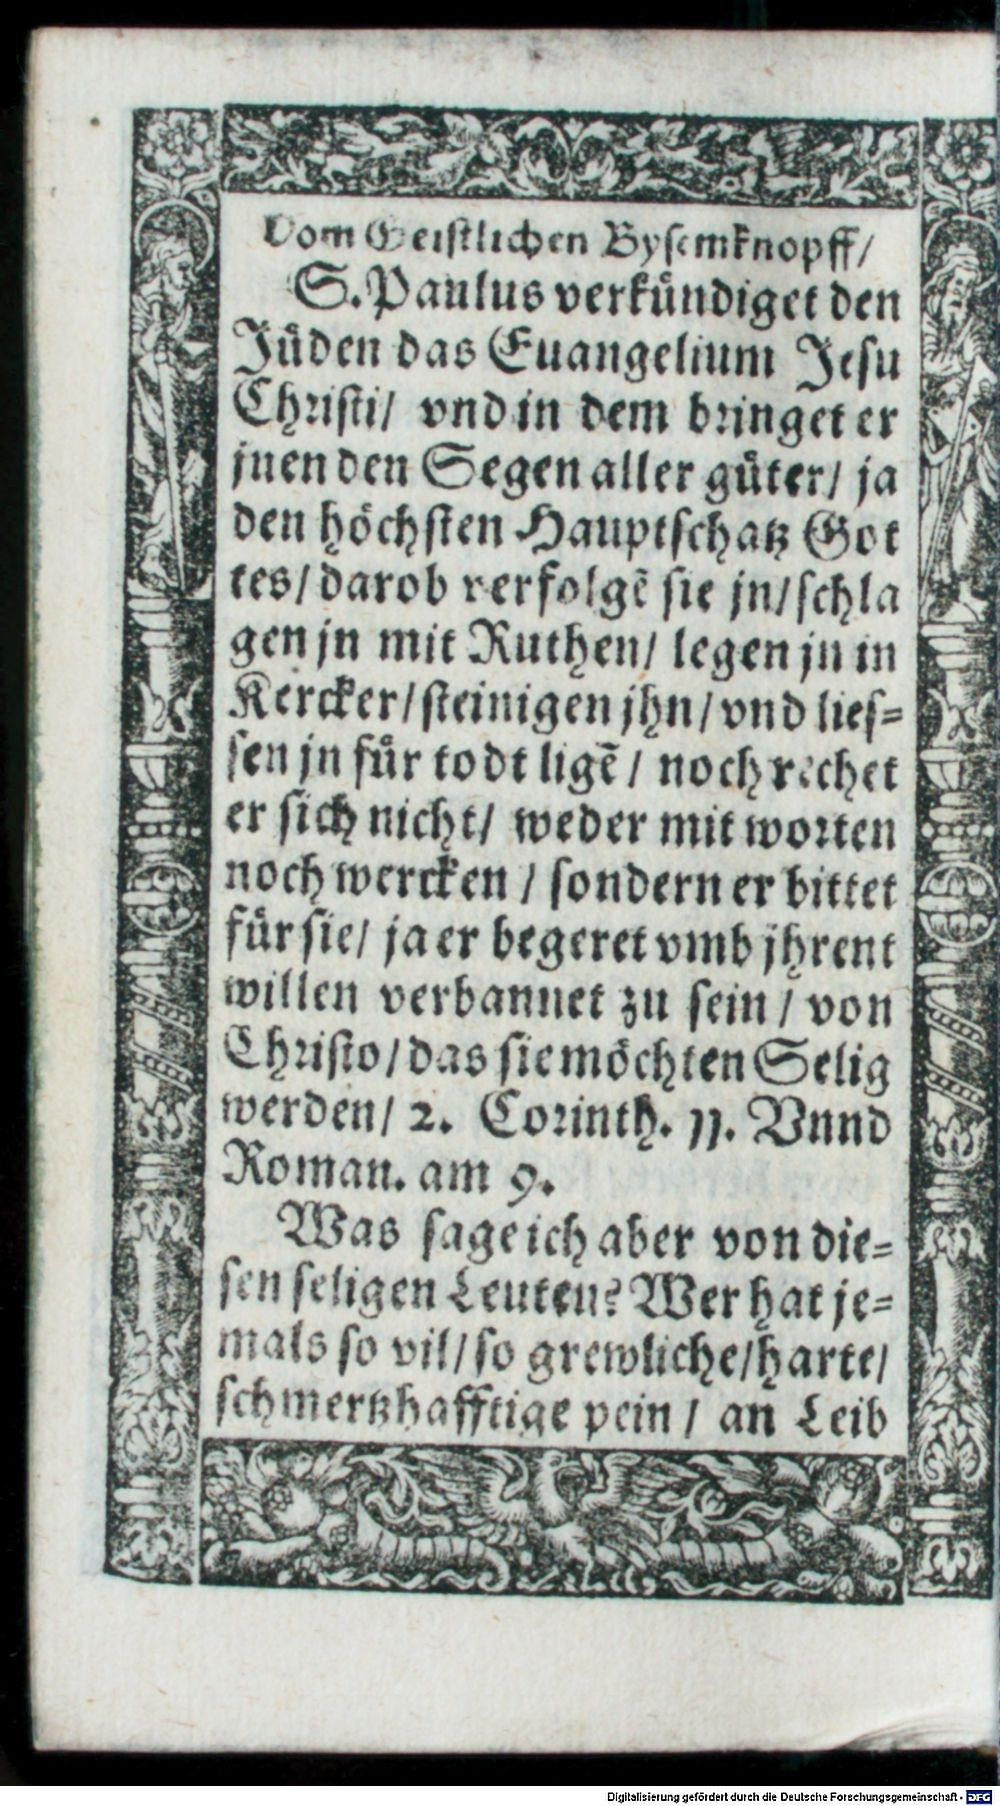 Vom Geistlichen Bysemknopff/
S. Paulus verkündiget den
Jüden das Euangelium Jesu
Christi/ vnd in dem bringet er
jnen den Segen aller güter/ ja
den höchsten Hauptschatz Got
tes/ darob verfolgē sie jn/ schla
gen jn mit Ruthen/ legen jn in
Kercker/ steinigen jhn/ vnd lies=
sen jn für todt ligē/ noch rechet
er sich nicht/ weder mit worten
noch wercken/ sondern er bittet
für sie/ ja er begeret vmb jhrent
willen verbannet zu sein/ von
Christo/ das sie möchten Selig
werden/ 2. Corinth. 11. Vnnd
Roman. am 9.
Was sage ich aber von die=
sen seligen Leuten? Wer hat je=
mals so vil/ so grewliche/ harte/
schmertzhafftige pein/ an Leib
Digitalisierung gefördert durch die Deutsche Forschungsgemeinschaft - DFG